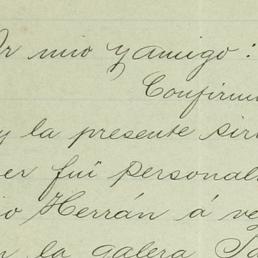 Sr mio y amigo:
Confirm
y la presente sir
er fuí personal
io Herrán á ve
la galera